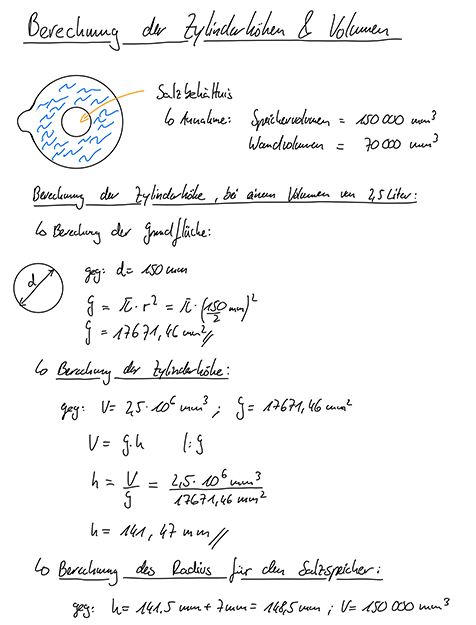 Berechnung der Zylinderhöhen & Volumen
Salzbehältnis
↳ Annahme: Speichervolumen = 150 000 mm³
Wandvolumen = 70 000 mm³
Berechnung der Zylinderhöhe, bei einem Volumen von 2,5 Liter:
↳ Berechnung der Grundfläche:
d
geg: d = 150 mm
G = π · r² = π · (150/2 mm)²
G = 17671,46 mm²
↳ Berechnung der Zylinderhöhe:
geg: V = 2,5 · 10⁶ mm³ ; G = 17671,46 mm²
V = G · h |: G
h = V/G = 2,5 · 10⁶ mm³ / 17671,46 mm²
h = 141,47 mm
↳ Berechnung des Radius für den Salzspeicher:
geg: h = 141,5 mm + 7 mm = 148,5 mm ; V = 150 000 mm³